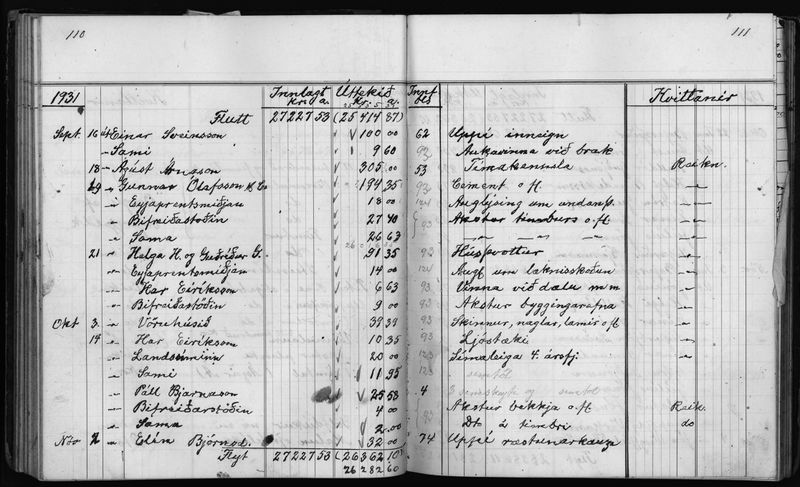 110
111
1931 Innlagt kr. a. Úttekið kr. a. Innf bls Kvittanir
Flutt 27227 53 (25 414 87)
Sept. 16 Einar Sveinsson 100 00 62 Uppí inneign
Sami 9 60 93 Aukavinna við brak
18 Ágúst Árnason 305 00 53 Tímakennsla Reikn.
19 Gunnar Ólafsson & Co 194 35 93 Cement o. fl.
Eyjaprentsmiðjan 18 00 124 Auglýsing um undanþ.
Bifreiðastöðin 27 40 93 Akstur timburs o. fl
Sama 26 63
21 Helga H. og Guðríður G. 91 35 93 Húsþvottur
Eyjaprentsmiðjan 14 00 124 Augl um læknisskoðun
Har Eiríksson 6 63 93 Vinna við dælu m m
Bifreiðarstöðin 9 00 93 Akstur byggingarefna
Okt 3 Vöruhúsið 39 39 93 Skinnur, naglar, lamir o fl
14 Har Eiríksson 10 35 93 Ljóstæki
Landsíminn 20 00 123 Símaleiga 4. ársfj.
Sami 11 95 123
Páll Bjarnason 25 53 4
Bifreiðarstöðin 4 00 Akstur bekkja o. fl Reik.
Sama 2 00 93 Do á timbri do
Nov 2 Elín Björnsd. 32 00 74 Uppí
Flyt 27227 53 (26 362 10)
26 282 60